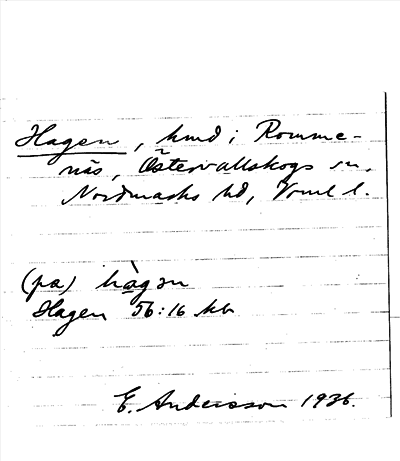 Hagen, hmd i Romme-
näs, Östervallskogs sn,
Nordmarks hd, Vrml l.
(pa) hàgən
Hagen 56:16 kb
E. Andersson 1936.